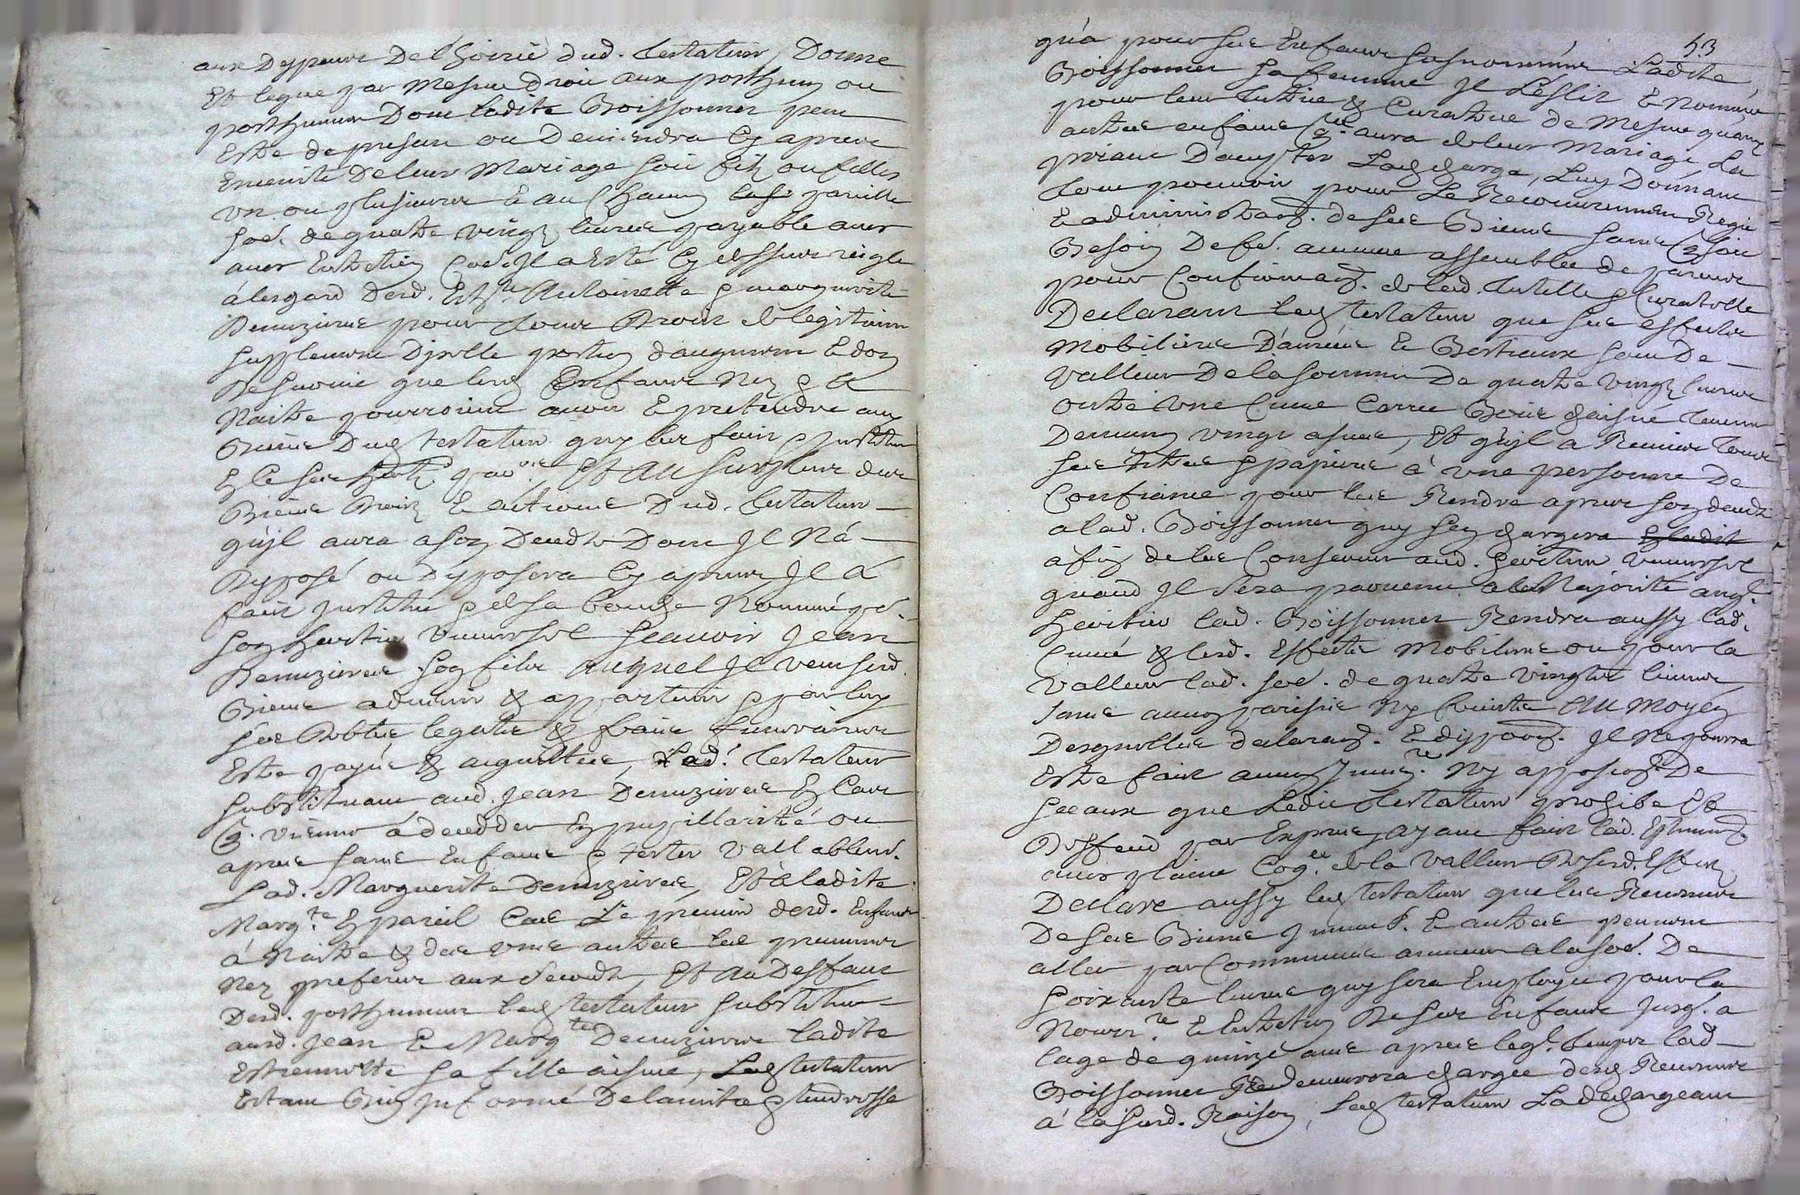 aux Despans De l'hoirie dud. testateur, Donne
Et legue par Mesme droit aux posthum ou
posthumes Dont ladite Boissonner peut
Estre de presant ou Deviendra Cy apres
Enceinte De leur Mariage soit filz ou filles
Un ou plusieurs & au Chacun pareille
so.e de quatre vingt livres payable avec
aux Entretien Co.e Il a Esté Cy dessus reigle
à l'esgard desd. Est.te Antoinette & marguerite
Demuzieres pour tous Droit de legitime
supplement D'icelle portion d'augment & don
De survie que lesd. Enfans Nez & a
Naitre pourroient avoir & pretendre aux
Biens Dud. testateur quy les fait & Institue
En ce ses par.rs Et Au surplus des
Biens Droitz & actions Dud. testateur
qu'il aura a son Decedz Dont Il N'a
Disposé ou Disposera Cy apres Il a
fait Institué & de sa bouche Nommé po.r
son heritier universel sçauoir Jean
Demuzieres son filz Auquel Il veut sesd.
Biens advenir & appartenir & par luy
ses Debtes legats & frais funeraires
Estre payés & aquittés, Led. testateur
substituant aud. Jean Demuzieres En Cas
qu. vienne à deceder En pupillarité ou
apres sans Enfans & tester Vallablem.
Lad. Marguerite Demuzieres, Et à ladite
Marg.te En pareil Cas Le premier desd. Enfans
à Naitre & des uns autres les premiers
Nez preferes aux seconds, Et Au Deffaut
Desd. posthumes led. testateur substitue
aud. Jean & Marg.te Demuzieres ladite
Estiennette sa fille aisnée, Led. testateur
Estant bien Informé De la conduite & tendresse
53
qu'a pour ses Enfans susnommés Ladite
Boissonner sa femme Il L'eslit & Nomme
pour leur tutrice & Curatrice de Mesme qu'aux
autres enfans qu. aura de leur Mariage La
priant D'accepter Lad. charge, Luy Donnant
tout pouvoir pour Le Recouvrement Regie
& administraon. de ses Biens sans qu. soit
Besoin De fe. aucune assemblée de parens
pour Confirmaon. de lad. tutelle & Curatelle
Declarant led. testateur que ses effects
Mobiliers Danrées & Bestiaux sont De
Valleur De la somme De quatre vingt livres
outre une Cuve Carrée Bois chaisne tenant
Demuid vingt asnées, Et qu'il a Remis tous
ses titres & papiers à une personne De
Confiance pour les Rendre apres son deceds
a lad. Boissonner quy s'en chargera
afin de les Conserver aud. heritier universel
quand Il sera parvenu a la Majorité auq.l
heritier lad. Boissonner Rendra aussy lad.
Cuve & lesd. Effects Mobiliers ou pour la
Valleur lad. so.e de quatre vingtz livres
sans aucun Interest Ny Crainte Au Moyen
Desquelles declaraon. & dispoon. Il Ne pourra
Estre fait aucun Invent.re Ny apposion. De
sceaux que Ledit testateur prohibe Et
Deffend par Expres ayant fait lad. Estimaon.
avec plaine Cog.ce de la Valleur Desd. Effects
Declare aussy led. testateur que les Revenus
De ses Biens Immeub. & autres peuvent
aller par Commune année a la so.e De
soixante livres quy sera Employée pour la
Nourr.re & Entretien De ses Enfans Jusq. a
l'age de quinze ans apres leq.l temps lad.
Boissonner Demeurera chargée desd. Revenus
à la susd. Raison, Led. testateur La dechargeant